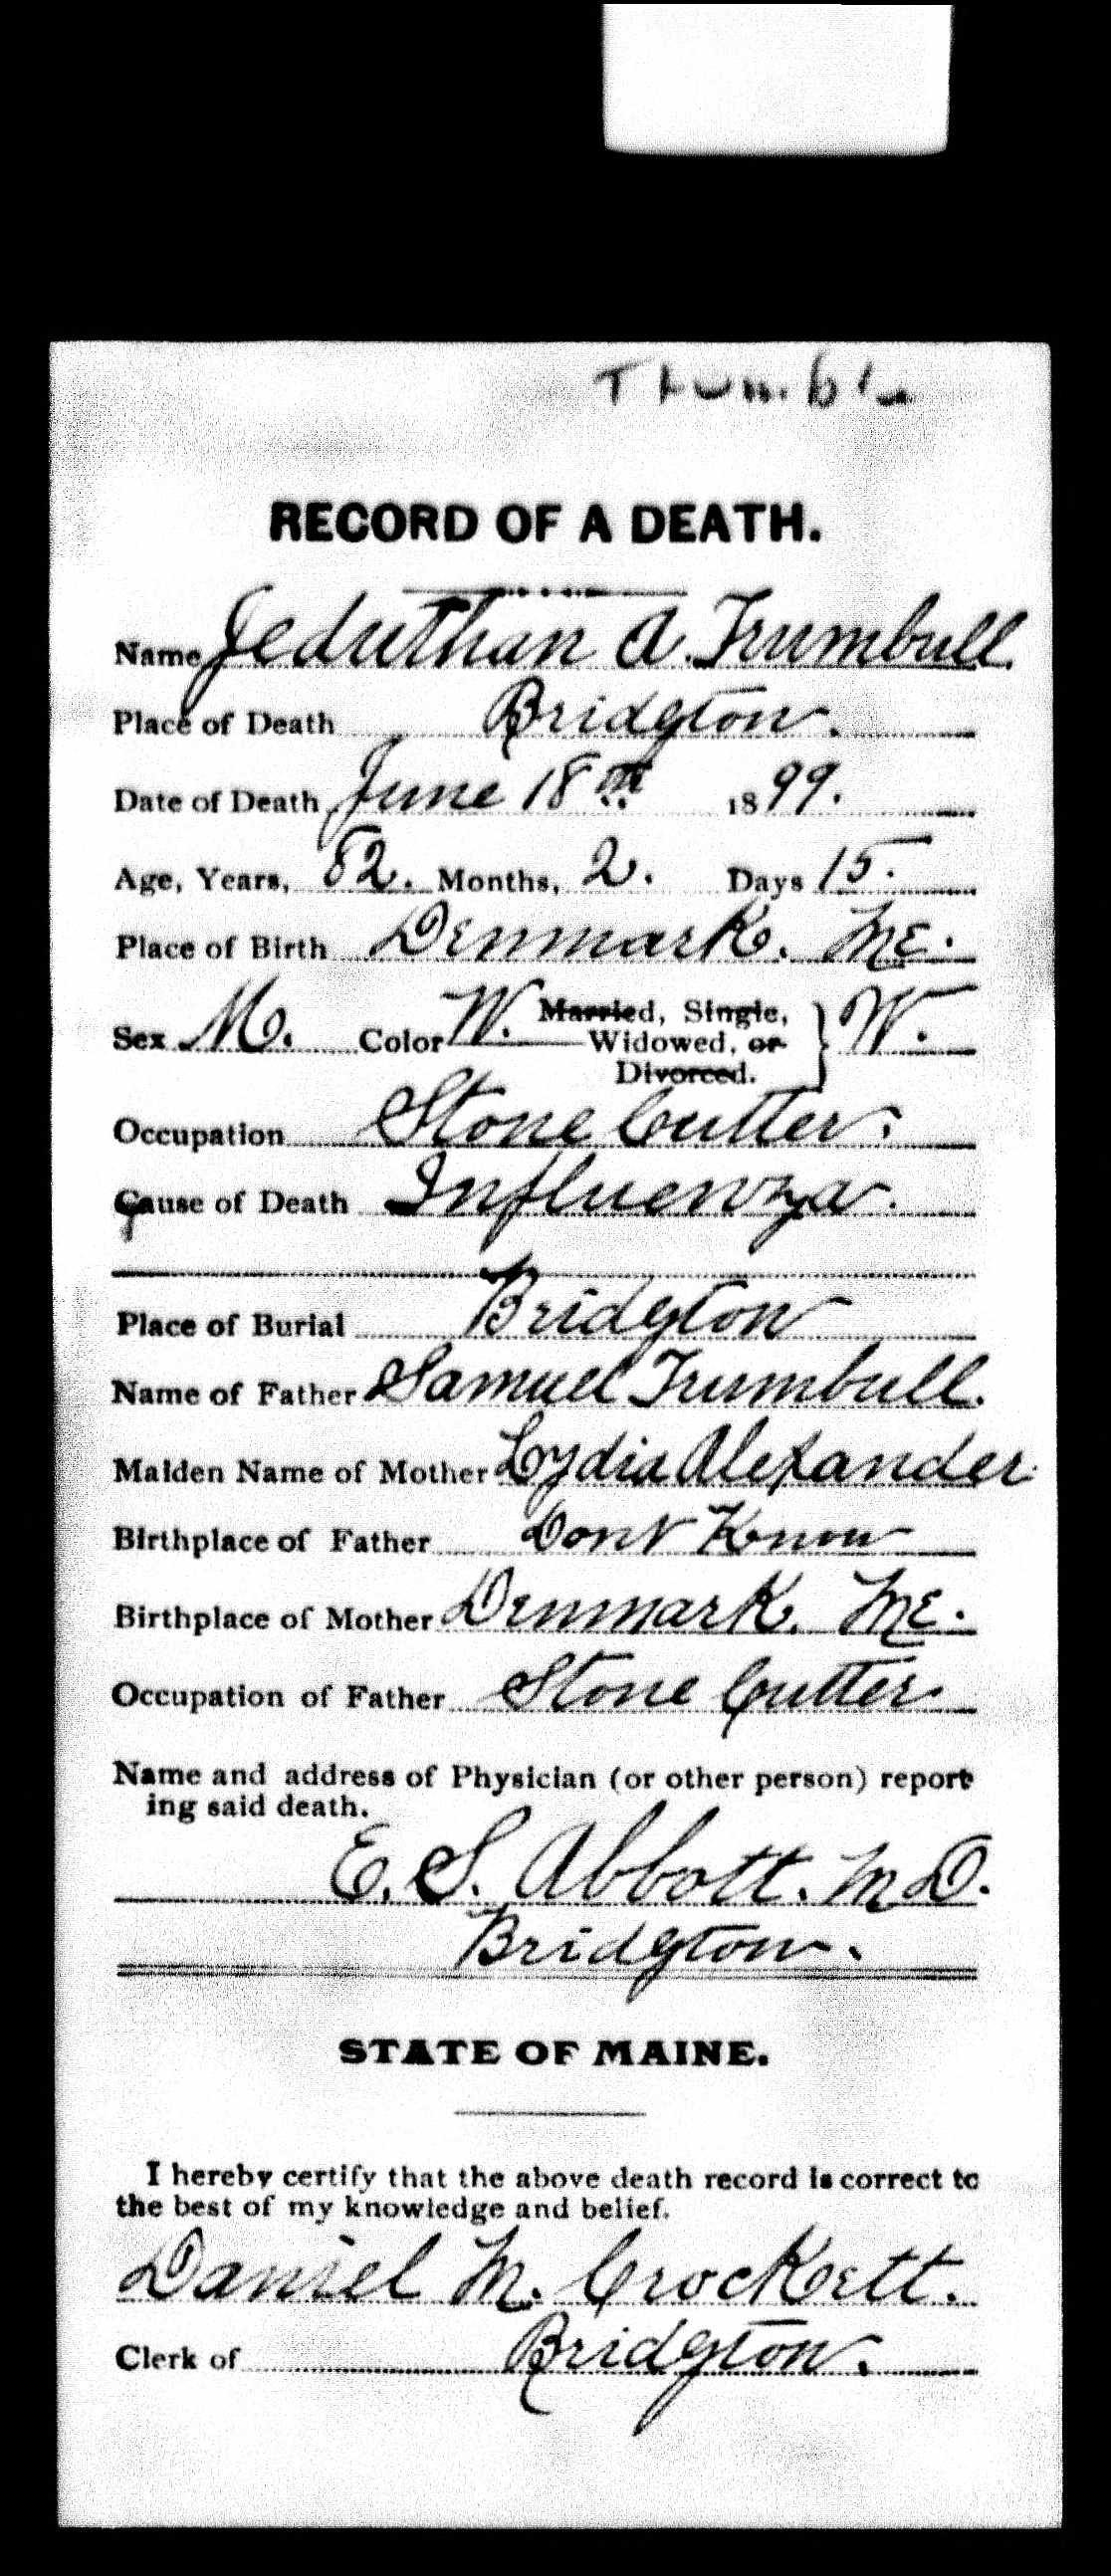 Trumble
RECORD OF A DEATH.
Name Jeduthan A. Trumbull.
Place of Death Bridgton.
Date of Death June 18th. 1899.
Age, Years, 82. Months, 2. Days 15.
Place of Birth Denmark. Me.
Sex M. Color W. Married, Single, Widowed, or Divorced. } W.
Occupation Stone Cutter.
Cause of Death Influenza.
Place of Burial Bridgton
Name of Father Samuel Trumbull.
Maiden Name of Mother Lydia Alexander.
Birthplace of Father Dont Know
Birthplace of Mother Denmark. Me.
Occupation of Father Stone Cutter
Name and address of Physician (or other person) report
ing said death.
E. S. Abbott. M D.
Bridgton.
STATE OF MAINE.
I hereby certify that the above death record is correct to
the best of my knowledge and belief.
Daniel M. Crockett.
Clerk of Bridgton.